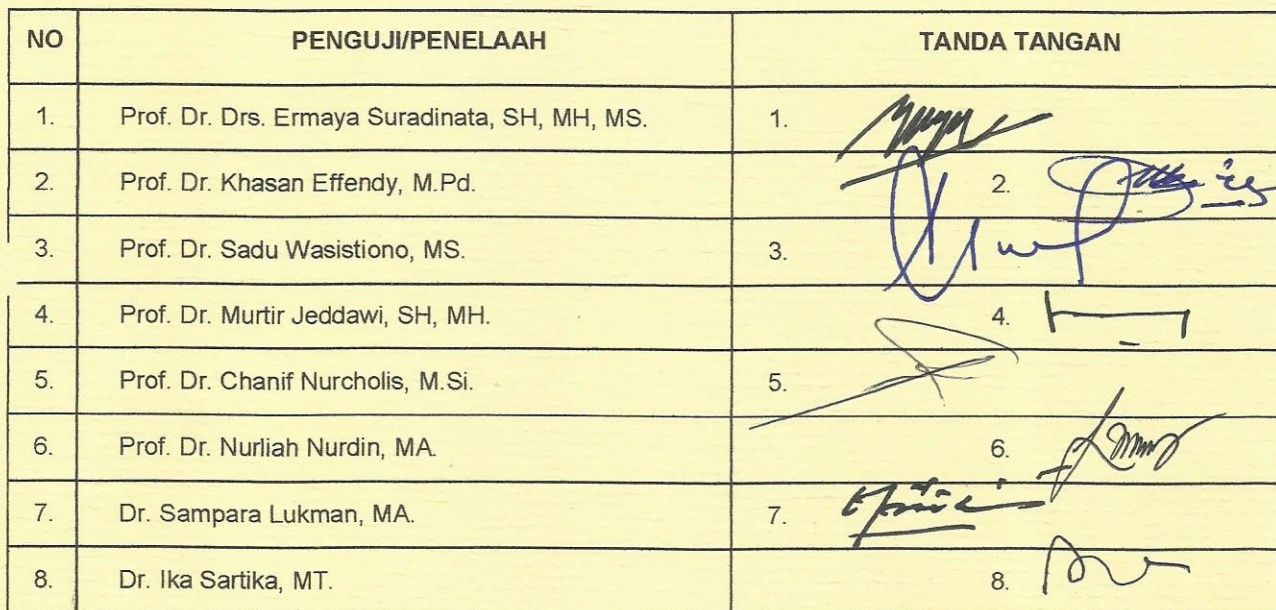 NO PENGUJI/PENELAAH TANDA TANGAN
1. Prof. Dr. Drs. Ermaya Suradinata, SH, MH, MS. 1.
2. Prof. Dr. Khasan Effendy, M.Pd. 2.
3. Prof. Dr. Sadu Wasistiono, MS. 3.
4. Prof. Dr. Murtir Jeddawi, SH, MH. 4.
5. Prof. Dr. Chanif Nurcholis, M.Si. 5.
6. Prof. Dr. Nurliah Nurdin, MA. 6.
7. Dr. Sampara Lukman, MA. 7.
8. Dr. Ika Sartika, MT. 8.